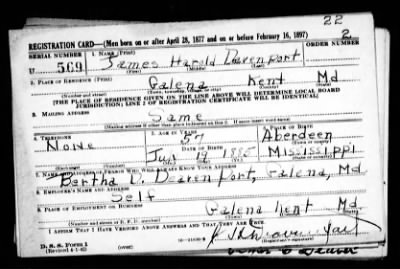 22
REGISTRATION CARD—(Men born on or after April 28, 1877 and on or before February 16, 1897)
SERIAL NUMBER 1. NAME (Print) ORDER NUMBER
U 569 James Harold Deavenport 2
(First) (Middle) (Last)
2. PLACE OF RESIDENCE (Print)
Galena Kent Md
(Number and street) (Town, township, village, or city) (County) (State)
[THE PLACE OF RESIDENCE GIVEN ON THE LINE ABOVE WILL DETERMINE LOCAL BOARD
JURISDICTION; LINE 2 OF REGISTRATION CERTIFICATE WILL BE IDENTICAL]
3. MAILING ADDRESS
Same
[Mailing address if other than place indicated on line 2. If same insert word same]
4. TELEPHONE 5. AGE IN YEARS 6. PLACE OF BIRTH
None 57 Aberdeen
DATE OF BIRTH (Town or county)
19 Mississippi
(Exchange) (Number) (Mo.) (Day) (Yr.) (State or country)
7. NAME AND ADDRESS OF PERSON WHO WILL ALWAYS KNOW YOUR ADDRESS
Bertha D. Deavenport, Galena, Md
8. EMPLOYER'S NAME AND ADDRESS
Self
9. PLACE OF EMPLOYMENT OR BUSINESS
Galena Kent Md
(Number and street or R. F. D. number) (Town) (County) (State)
I AFFIRM THAT I HAVE VERIFIED ABOVE ANSWERS AND THAT THEY ARE TRUE.
D. S. S. Form 1
(Revised 4-1-42) (over) (Registrant's signature)